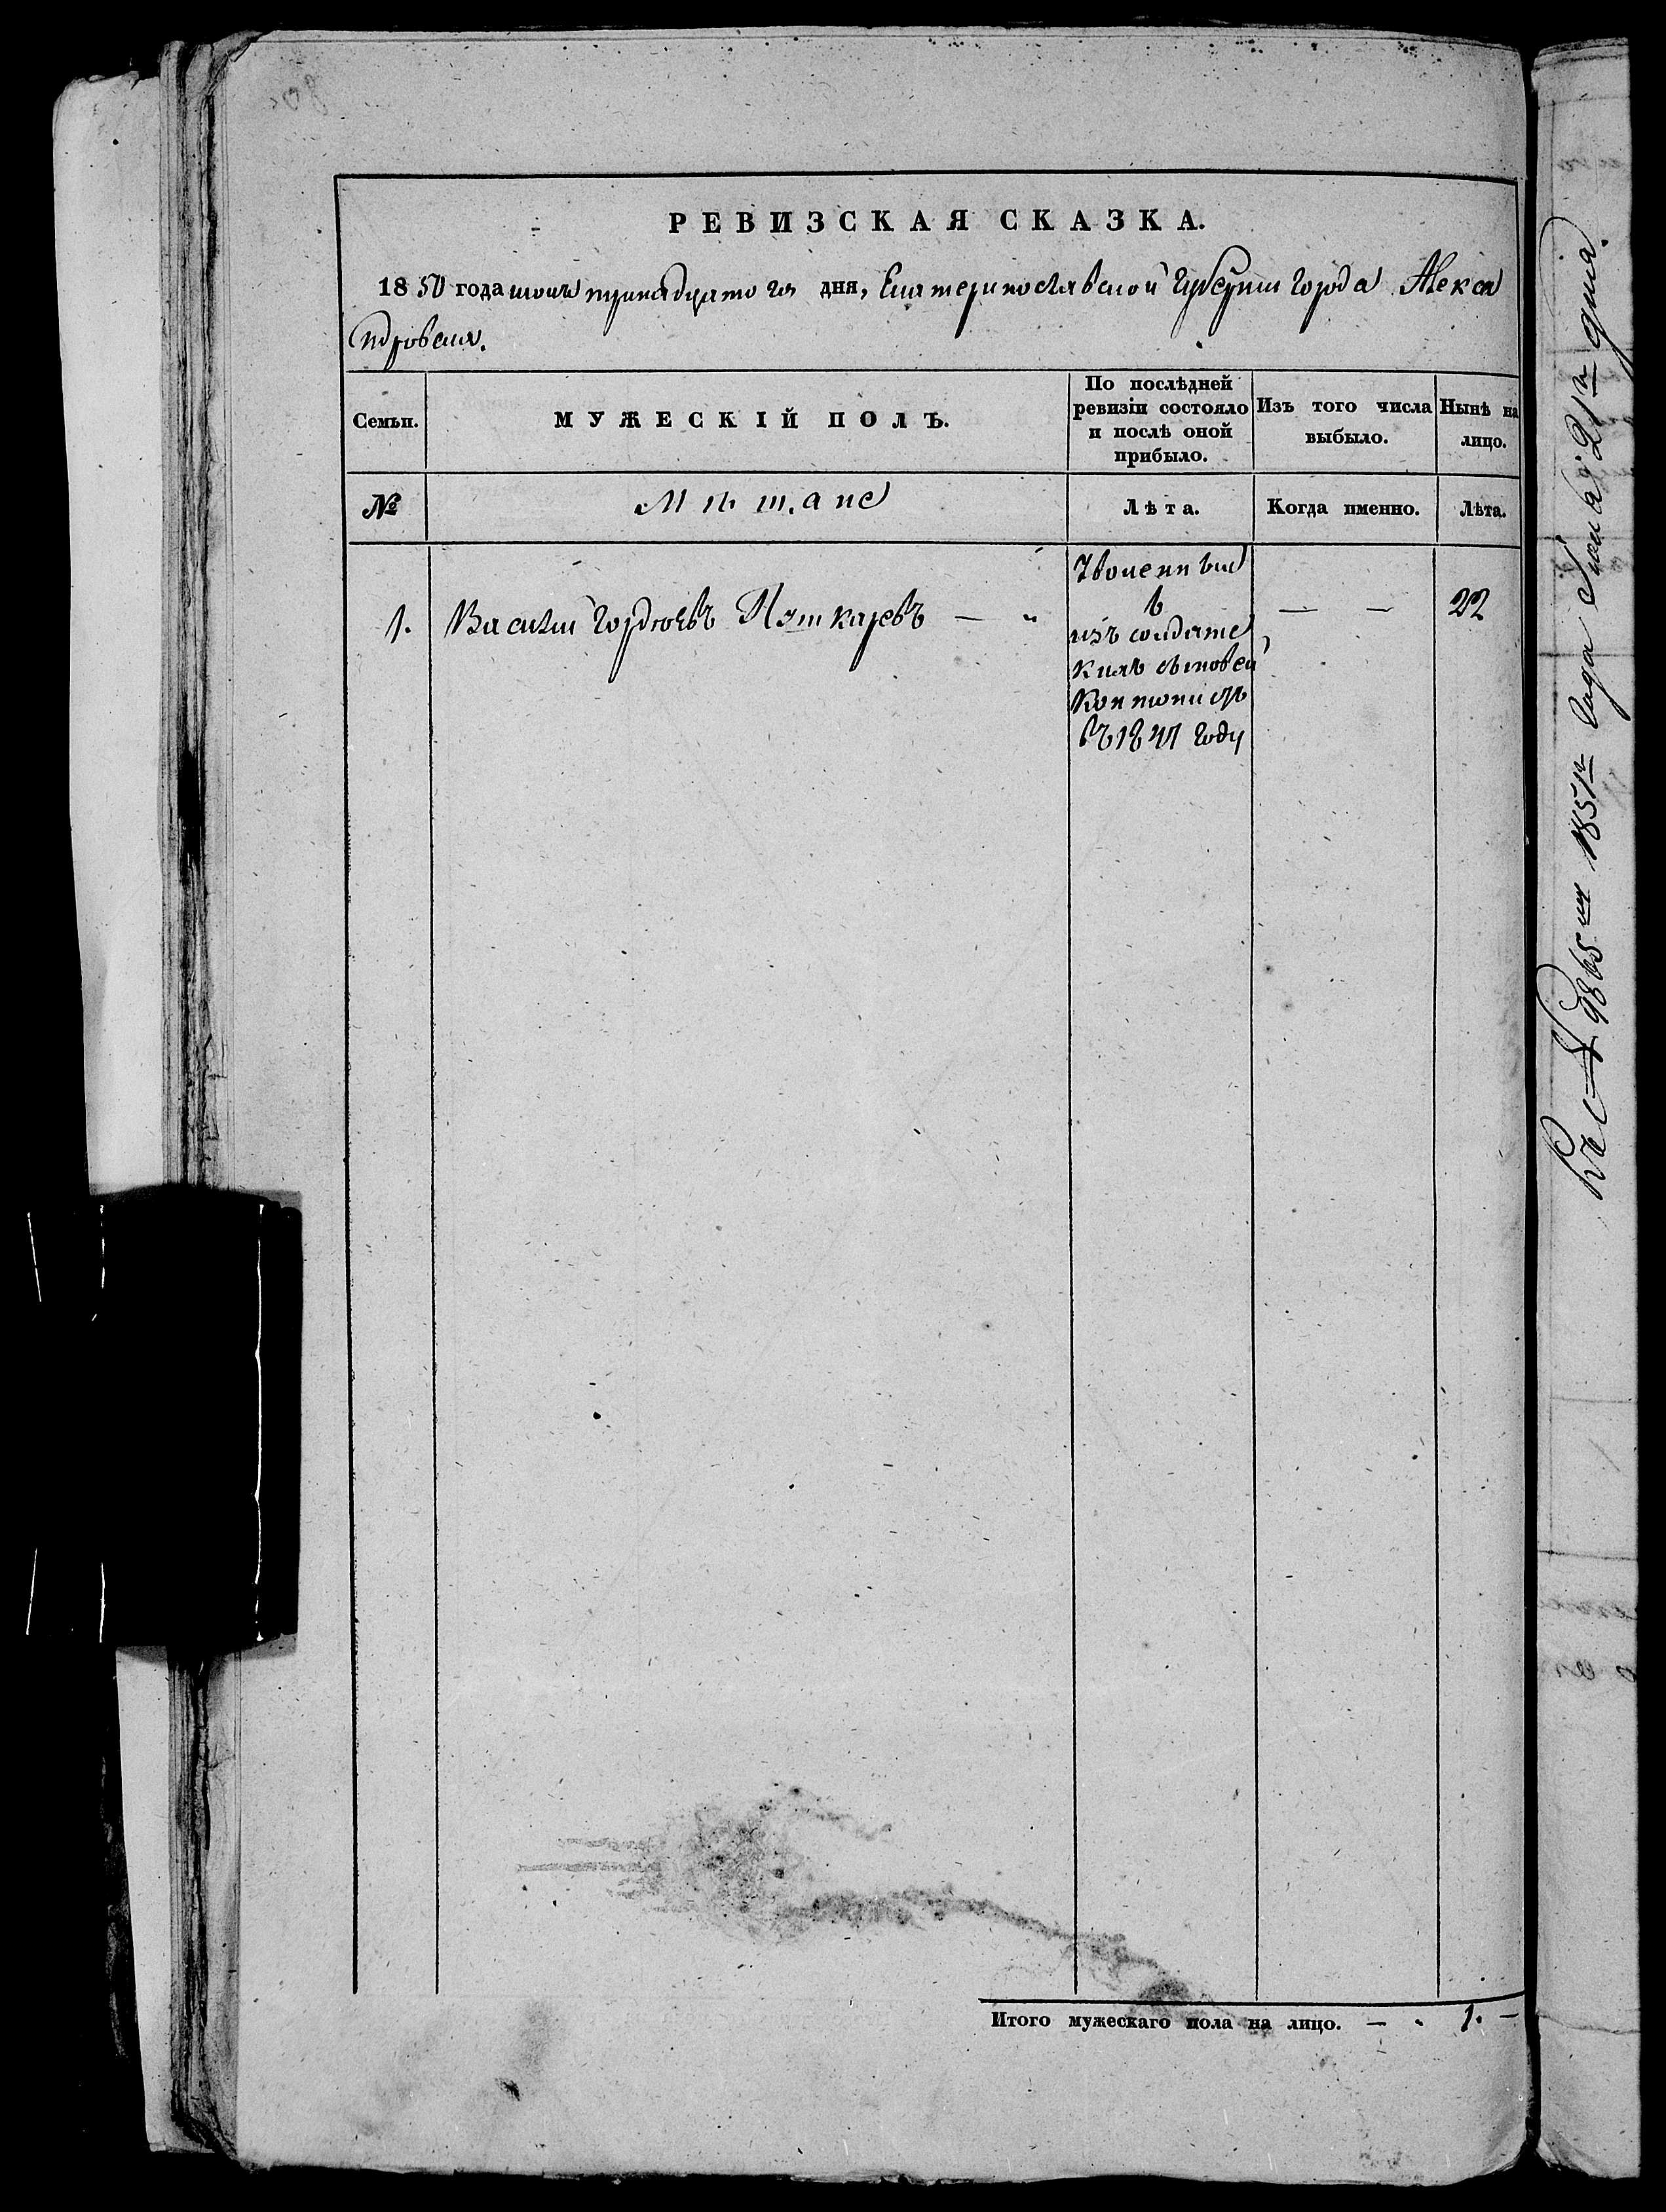 РЕВИЗСКАЯ СКАЗКА.
1850 года июня тринадцатого дня, Екатеринославской Губернии города Алекса
ндровска.
Семьи.
МУЖЕСКІЙ ПОЛЪ.
По послѣдней
ревизіи состояло
и послѣ оной
прибыло.
Изъ того числа
выбыло.
Нынѣ на
лицо.
№
Мѣщане
Лѣта.
Когда именно.
Лѣта.
1. Василій Гордѣевъ Пушкаревъ — „
изъ солдатс
кихъ сыновей
Кантонистъ
въ 1847 году
— —
22
Итого мужескаго пола на лицо. — . 1. —
Къ № 9865 1851го Года 21го дня.